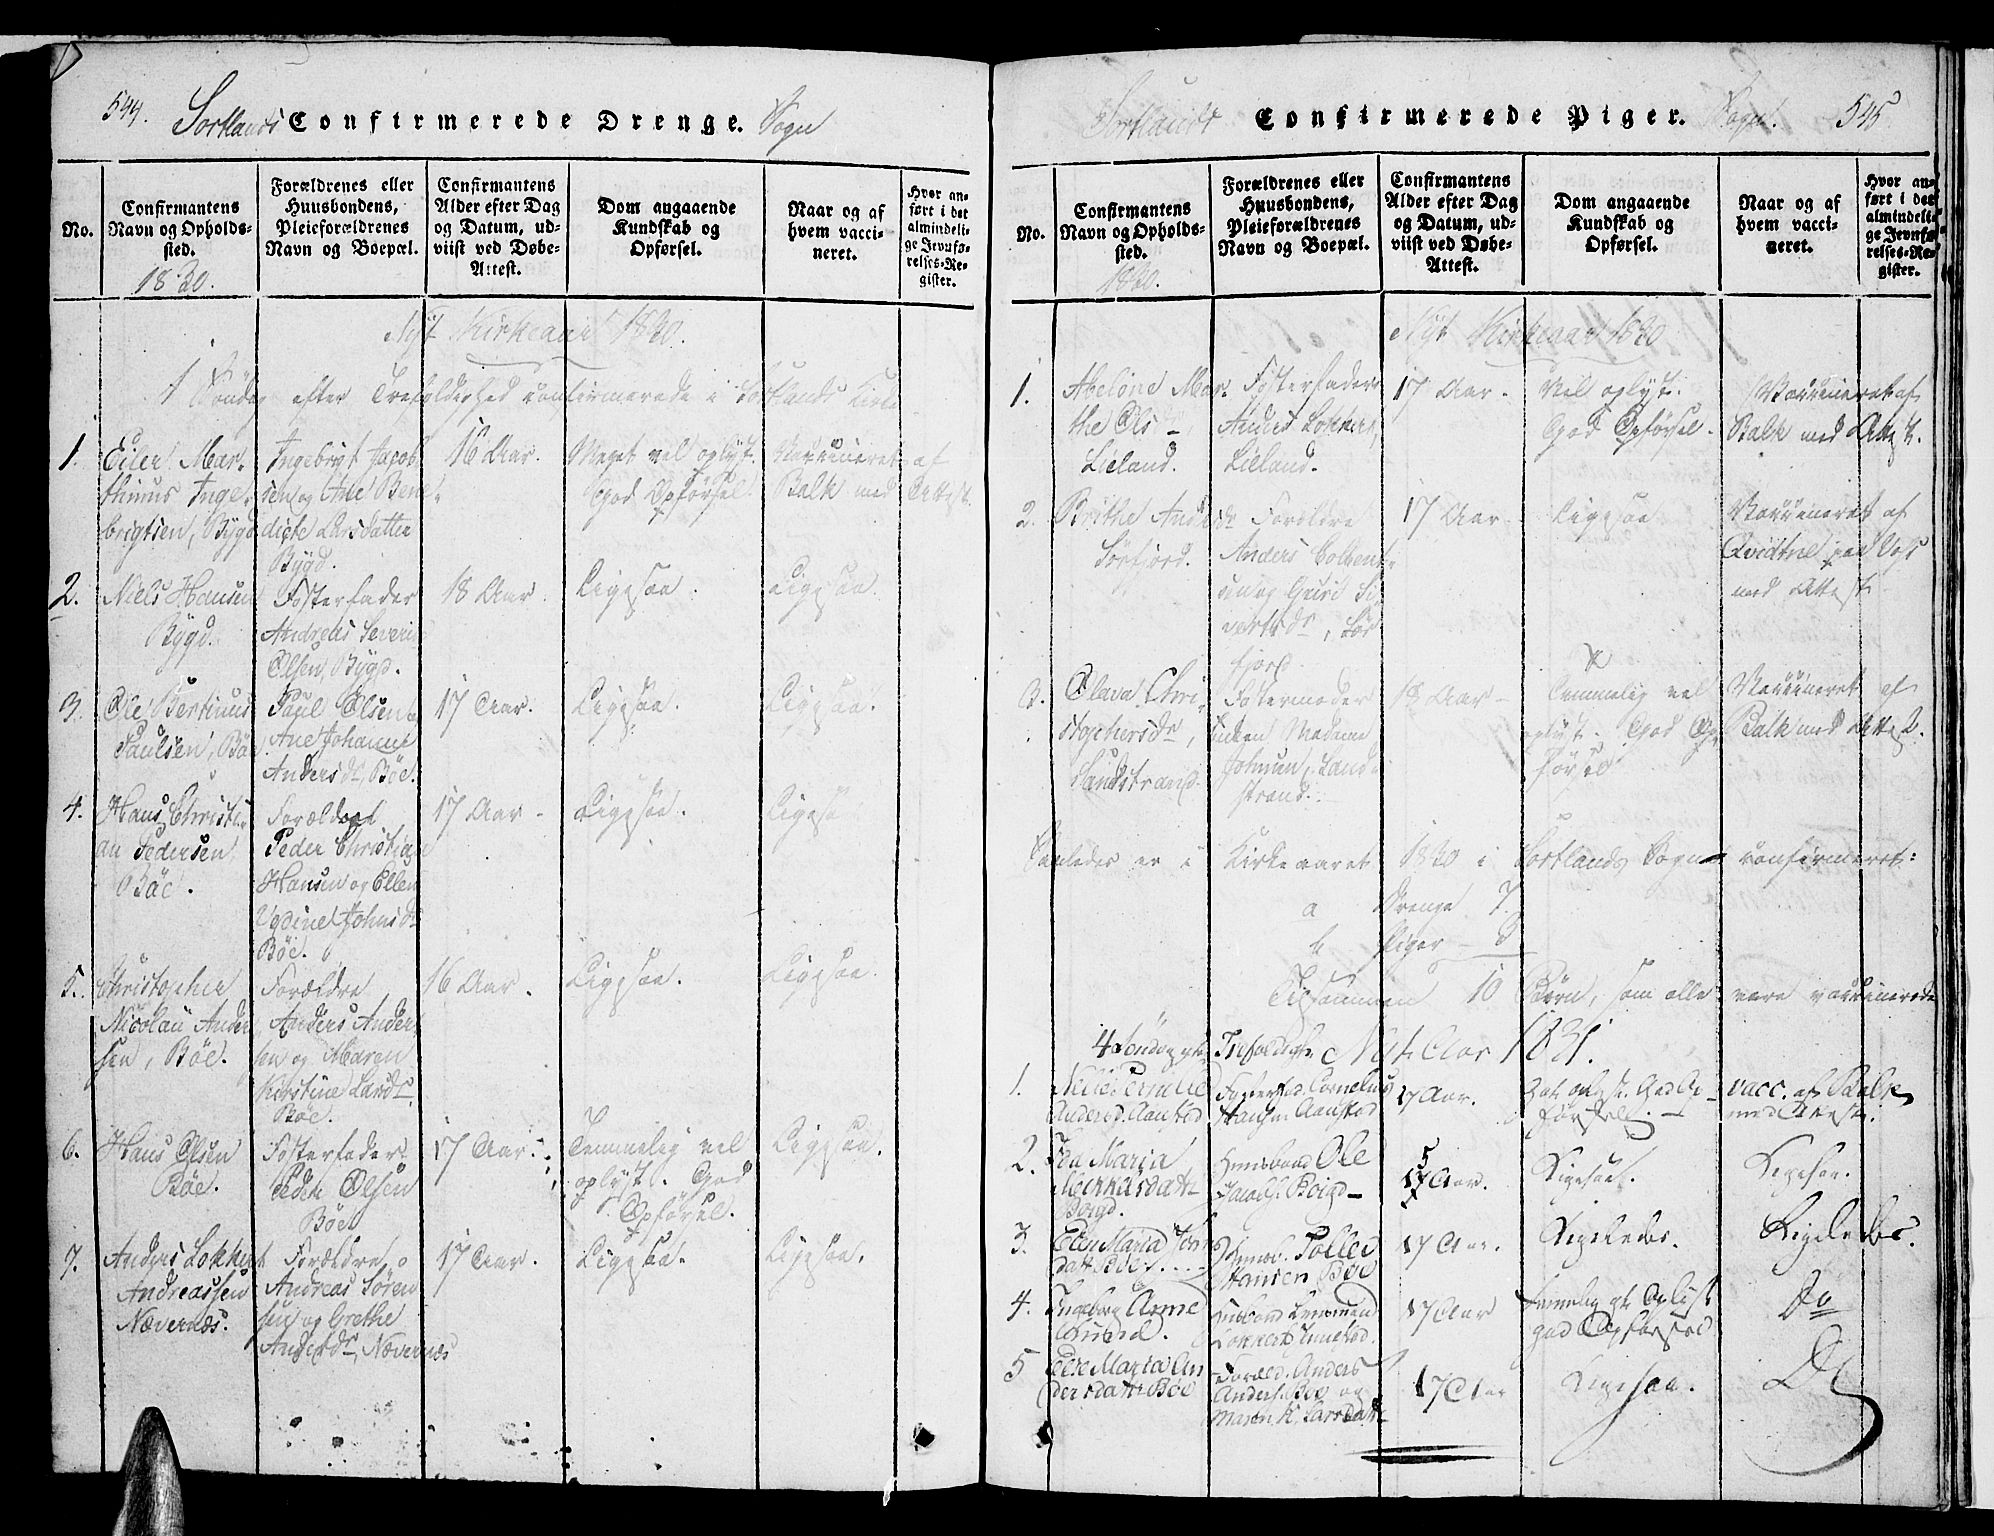 544. Sortlands Confirmerede Drenge. Sogn
No.
Confirmantens
Navn og Opholds-
sted.
1830.
Forældrenes eller
Huusbondens,
Pleieforældrenes
Navn og Boepæl.
Confirmantens
Alder efter Dag
og Datum, ud-
viist ved Døbe-
Attest.
Dom angaaende
Kundskab og
Opførsel.
Naar og af
hvem vacci-
neret.
Hvor an-
ført i det
almindeli-
ge Jevnfø-
relses-Re-
gister.
Nyt Kirkeaar 1830.
Søndag efter Trefoldighed confirmerede i Sortlands Kirke
1.
Eiler Mar-
thinus Inge-
brigtsen, Bygd
Ingebrigt Jacob-
sen og Ane Bene-
dicte Larsdatter
Bygd.
16 Aar.
Meget vel oplyst.
God Opførsel.
Vaccineret af
Balk med Attest
2.
Niels Hansen
Bygd.
Fosterfader
Andreas Severin
Olsen, Bygd.
18 Aar.
Ligesaa.
Ligesaa.
3.
Ole Bertinus
Paulsen, Böe
Paul Olsen
Ane Johanne
Andersdr, Böe.
17 Aar.
Ligesaa.
Ligesaa.
4.
Hans Christi-
an Pedersen
Böe.
Forældre
Peder Christian
Hansen og Ellen
Johnsdr
Böe.
17 Aar.
Ligesaa.
Ligesaa
5.
Christopher
Nicolai Ander-
sen, Böe.
Forældre
Anders Ander-
sen og Maren
Kirstine Larsdr.
Böe.
16 Aar.
Ligesaa.
Ligesaa.
6.
Hans Olsen
Böe.
Fosterfader
Peder Olsen
Böe
17 Aar.
Temmelig vel
oplyst. God
Opførsel.
Ligesaa.
7.
Anders Lokkert
Andreassen
Nævernæs.
Forældre
Andreas Søren-
sen og Grethe
Andersdr, Nævernæs
17 Aar.
Ligesaa.
Ligesaa.
Sortlands Confirmerede Piger. Sogn. 545
No.
Confirmantens
Navn og Opholds-
sted.
1830.
Forældrenes eller
Huusbondens,
Pleieforældrenes
Navn og Boepæl.
Confirmantens
Alder efter Dag
og Datum, ud-
viist ved Døbe-
Attest.
Dom angaaende
Kundskab og
Opførsel.
Naar og af
hvem vacci-
neret.
Hvor an-
ført i det
almindeli-
ge Jevnfø-
relses-Re-
gister.
Nyt Kirkeaar 1830
1.
Abelone Mar-
the Ols-
Lieland.
Fosterfader
Anders Lokkert,
Lieland.
17 Aar.
Vel oplyst.
God Opførsel.
Vaccineret af
Balk med Attest.
2.
Brithe Andersdr
Sörfjord.
Forældre
Anders Colbent-
sen og Guri Si-
vertsdr, Sör-
fjord.
17 Aar
Ligesaa
Vaccineret af
Qvidtne paa Vos
med Attest
3.
Olava Chri-
stophersdr,
Sandstrand.
Fostermoder
Enken Madame
Johnsen, Sand-
strand.
18 Aar
Temmelig vel
oplyst. God Op-
førsel
Vaccineret af
Balk med Attest.
Saaledes er i Kirkeaaret 1830 i Sortlands Sogn confirmeret:
a Drenge 7.
b Piger - 3
Tilsammen 10 Børn, som alle vare vaccinerede
4 Søndag efter Trefoldigh. Nyt Aar 1831.
1.
Andersd. Aanstad
Fosterfad. Cornelius
Hansen Aanstad
17 Aar.
Got oplyst. God Op-
førsel.
vacc. af Balk
med Attest.
2.
Ida Maria
Boigd.
Huusbond Ole
Jacobs. Boigd
17 Aar.
5
Ligesaa.
Ligesaa.
3.
Elen Maria Jons
datt Böe
Huusb. Toller
Hansen Böe
17 Aar.
Ligeledes.
Ligeledes.
4.
Ingeborg Anne
Huusbond Lensmand
Lokkert
17 Aar
Temmelig gt. Oplyst
god Opførsel
Do
5
Maria An-
dersdatt. Böe
Foræld. Anders
Anders. Böe og
Maren K. Larsdatt
17 Aar
Ligesaa.
Do